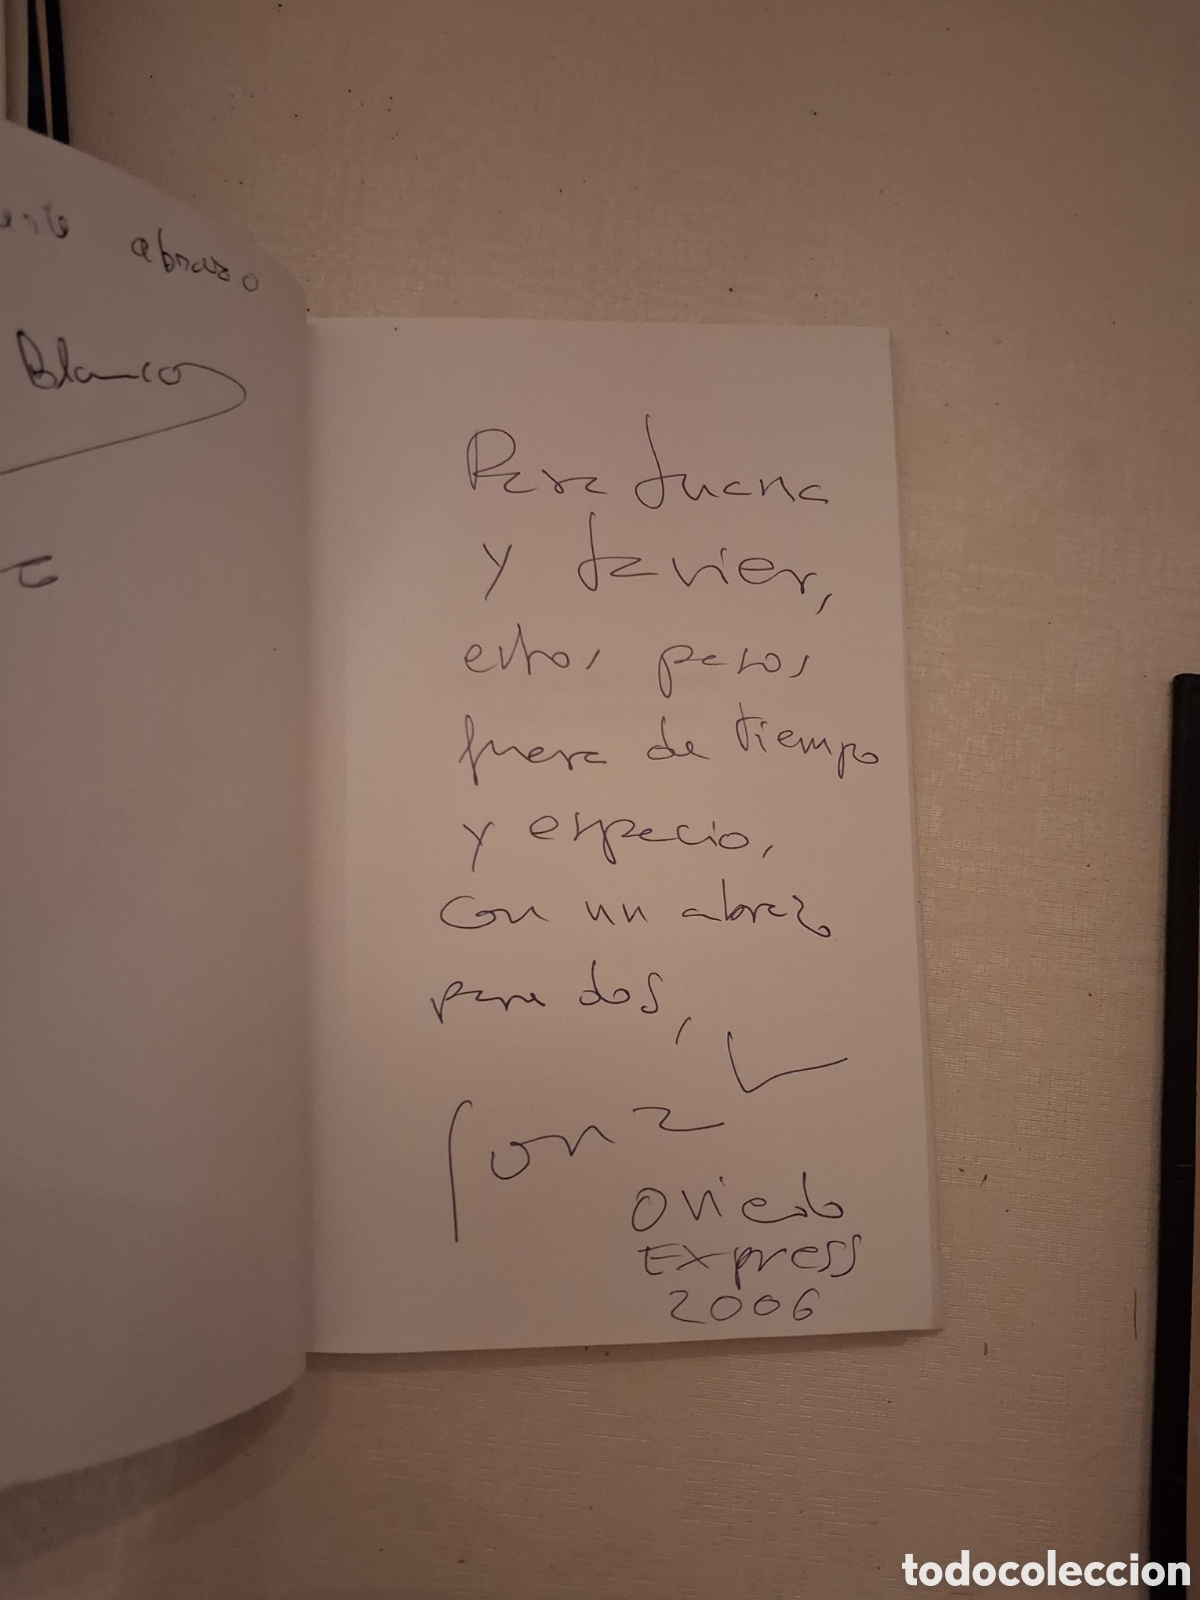 abrazo
Blanco
Para Juana
y Javier,
estos pasos
fuera de tiempo
y espacio,
con un abrazo
para dos,
Oviedo
Express
2006
todocoleccion